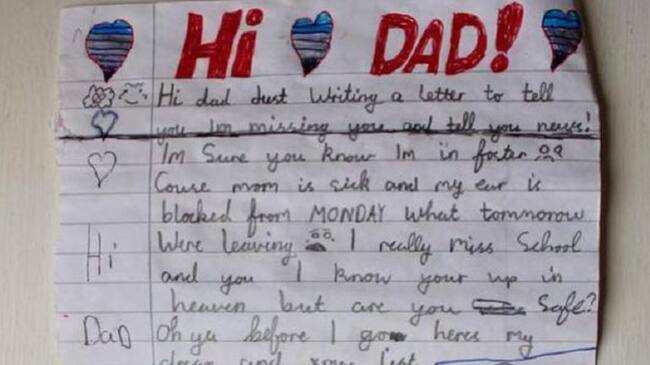 Hi DAD!
Hi dad Just Writing a letter to tell
you Im missing you and tell you news!
Im Sure you know Im in foster
Couse mom is sick and my ear is
blocked from MONDAY What tommorow
Hi Were leaving I really miss School
and you I know your up in
heaven but are you Safe?
Dad Oh ya before I go heres my
and xmas list